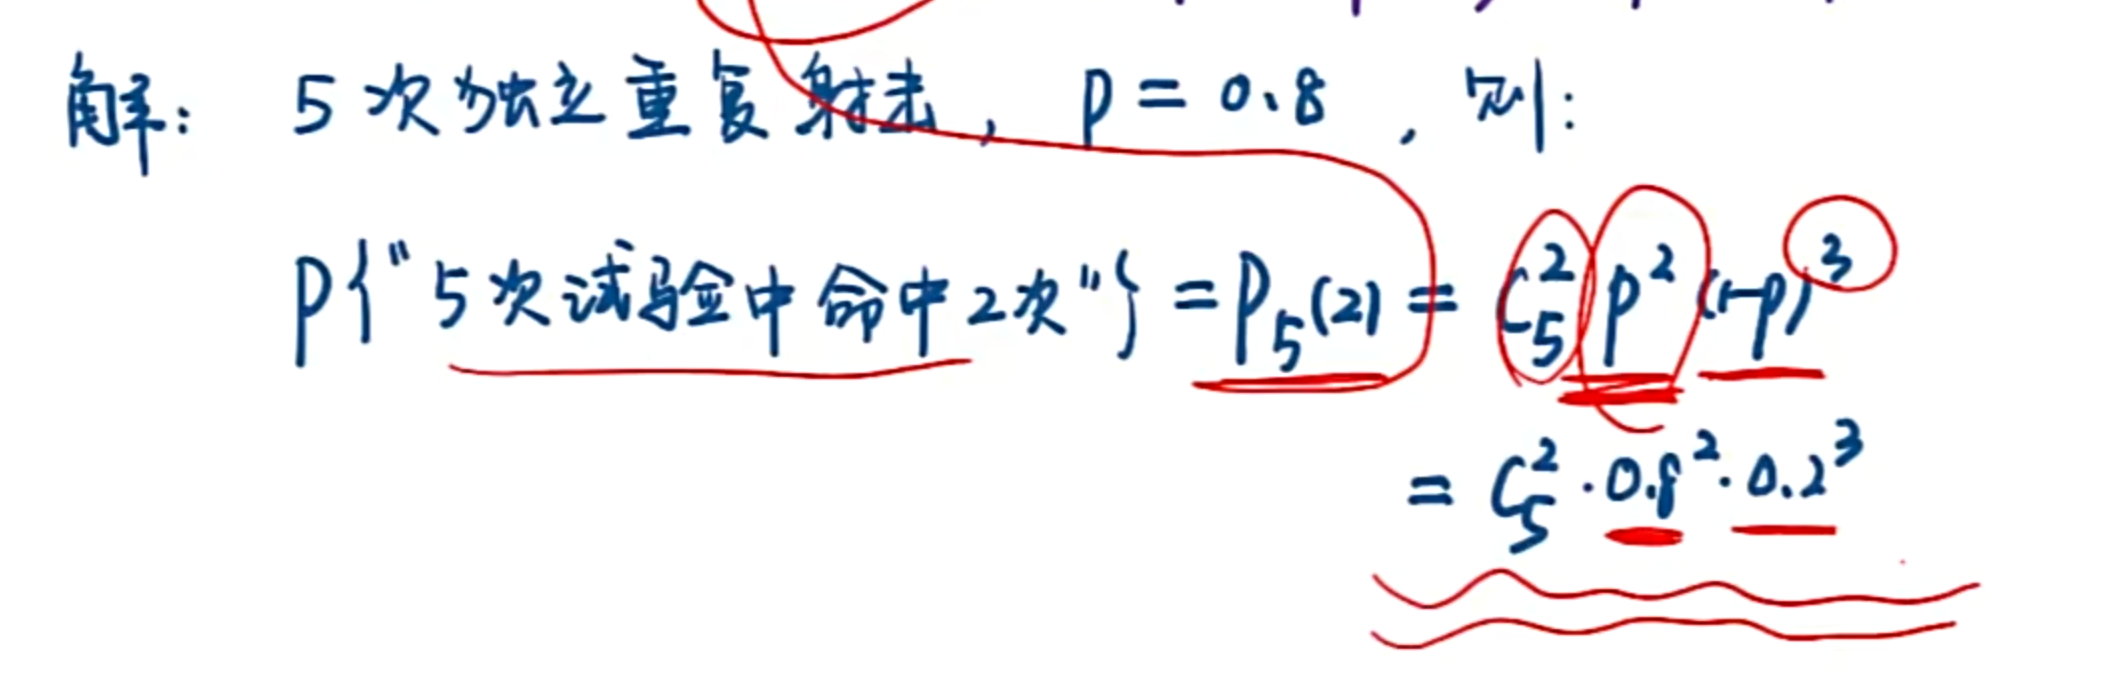 解: 5次独立重复射击, p = 0.8, 则:
P{"5次试验中命中2次"} = P₅(2) = C₅² p² (1-p)³
= C₅² · 0.8² · 0.2³